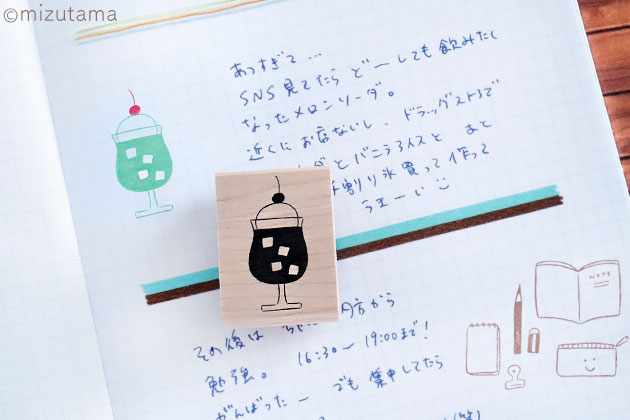 ©mizutama
あつすぎて…
SNS見てたら どーしても飲みたく
なったメロンソーダ。
近くにお店ないし、ドラッグストアで
ダとバニラアイスと あと
割り氷買って作って
うまーい
その後は 夕方から
勉強。 16:30〜19:00まで!
がんばったー でも集中してたら
NOTE